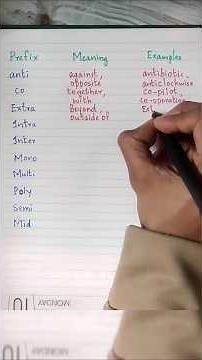 Prefix Meaning Examples
anti against, antibiotic,
opposite anticlockwise
co together, co-pilot,
with. co-operation
Extra Beyond, Ext
outside of
Intra
Inter
Mono
Multi
Poly
Semi
Mid
MONDAY 10